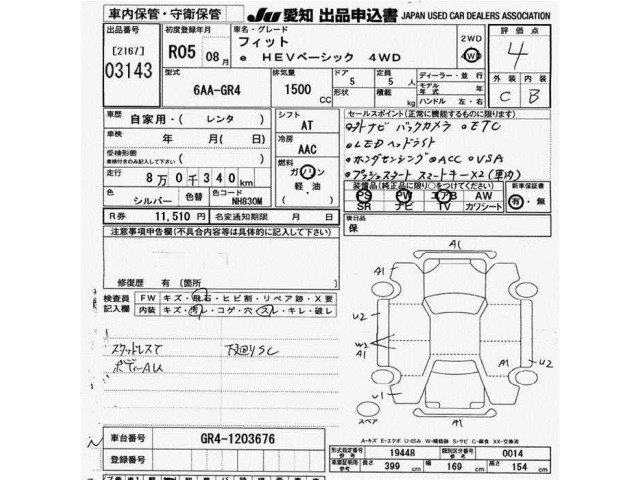 車内保管・守衛保管
JU 愛知 出品申込書 JAPAN USED CAR DEALERS ASSOCIATION
出品番号
[2167]
03143
初度登録年月
R05 08月
車名・グレード
フィット
e HEVベーシック 4WD
2WD
4WD
評価点
4
型式
6AA-GR4
排気量
1500 CC
ドア
5
形状
定員
5 人
積載
kg
ディーラー・並行
モデル年式 年
ハンドル 左・右
外装 内装
C B
車歴
自家用・( レンタ )
シフト
AT
車検
年 月( 日)
冷房
AAC
受検形態
車検付きのみ記入して下さい
( )
燃料
ガソリン
軽・油
( )
走行
8万0千340km
色
シルバー
色替
色コード
NH830M
R券 11,510 円 名変通知期限 月 日
セールスポイント(正常に機能するものに限ります)
ナビ バックカメラ ETC
LEDヘッドライト
ホンダセンシング ACC VSA
プッシュスタート スマートキーX2(車内)
装備品(純正品に限り○をつけてください)
PS PW エアB AW
SR ナビ TV カワシート
新車保証書
有・無
後日品
保
注意事項申告欄(不具合内容等は具体的に記入して下さい)
修復歴 有 (箇所 )
検査員記入欄
FW キズ・飛石・ヒビ割・リペア跡・X要
内装 キズ・汚レ・コゲ・穴・スレ・キレ・破レ
スタッドレスT 下廻りSC
ボディーAU
A1
A1
U2
W2
A1
A1
U2
U1
A1
スペア
A-キズ E-エクボ U-凹み W-補修跡 S-サビ C-腐食 XX-交換済
車台番号
GR4-1203676
登録番号
型式指定番号
参考
19448
類別区分番号
参考
0014
車庫証明用
参考
長さ 399 cm 幅 169 cm 高さ 154 cm